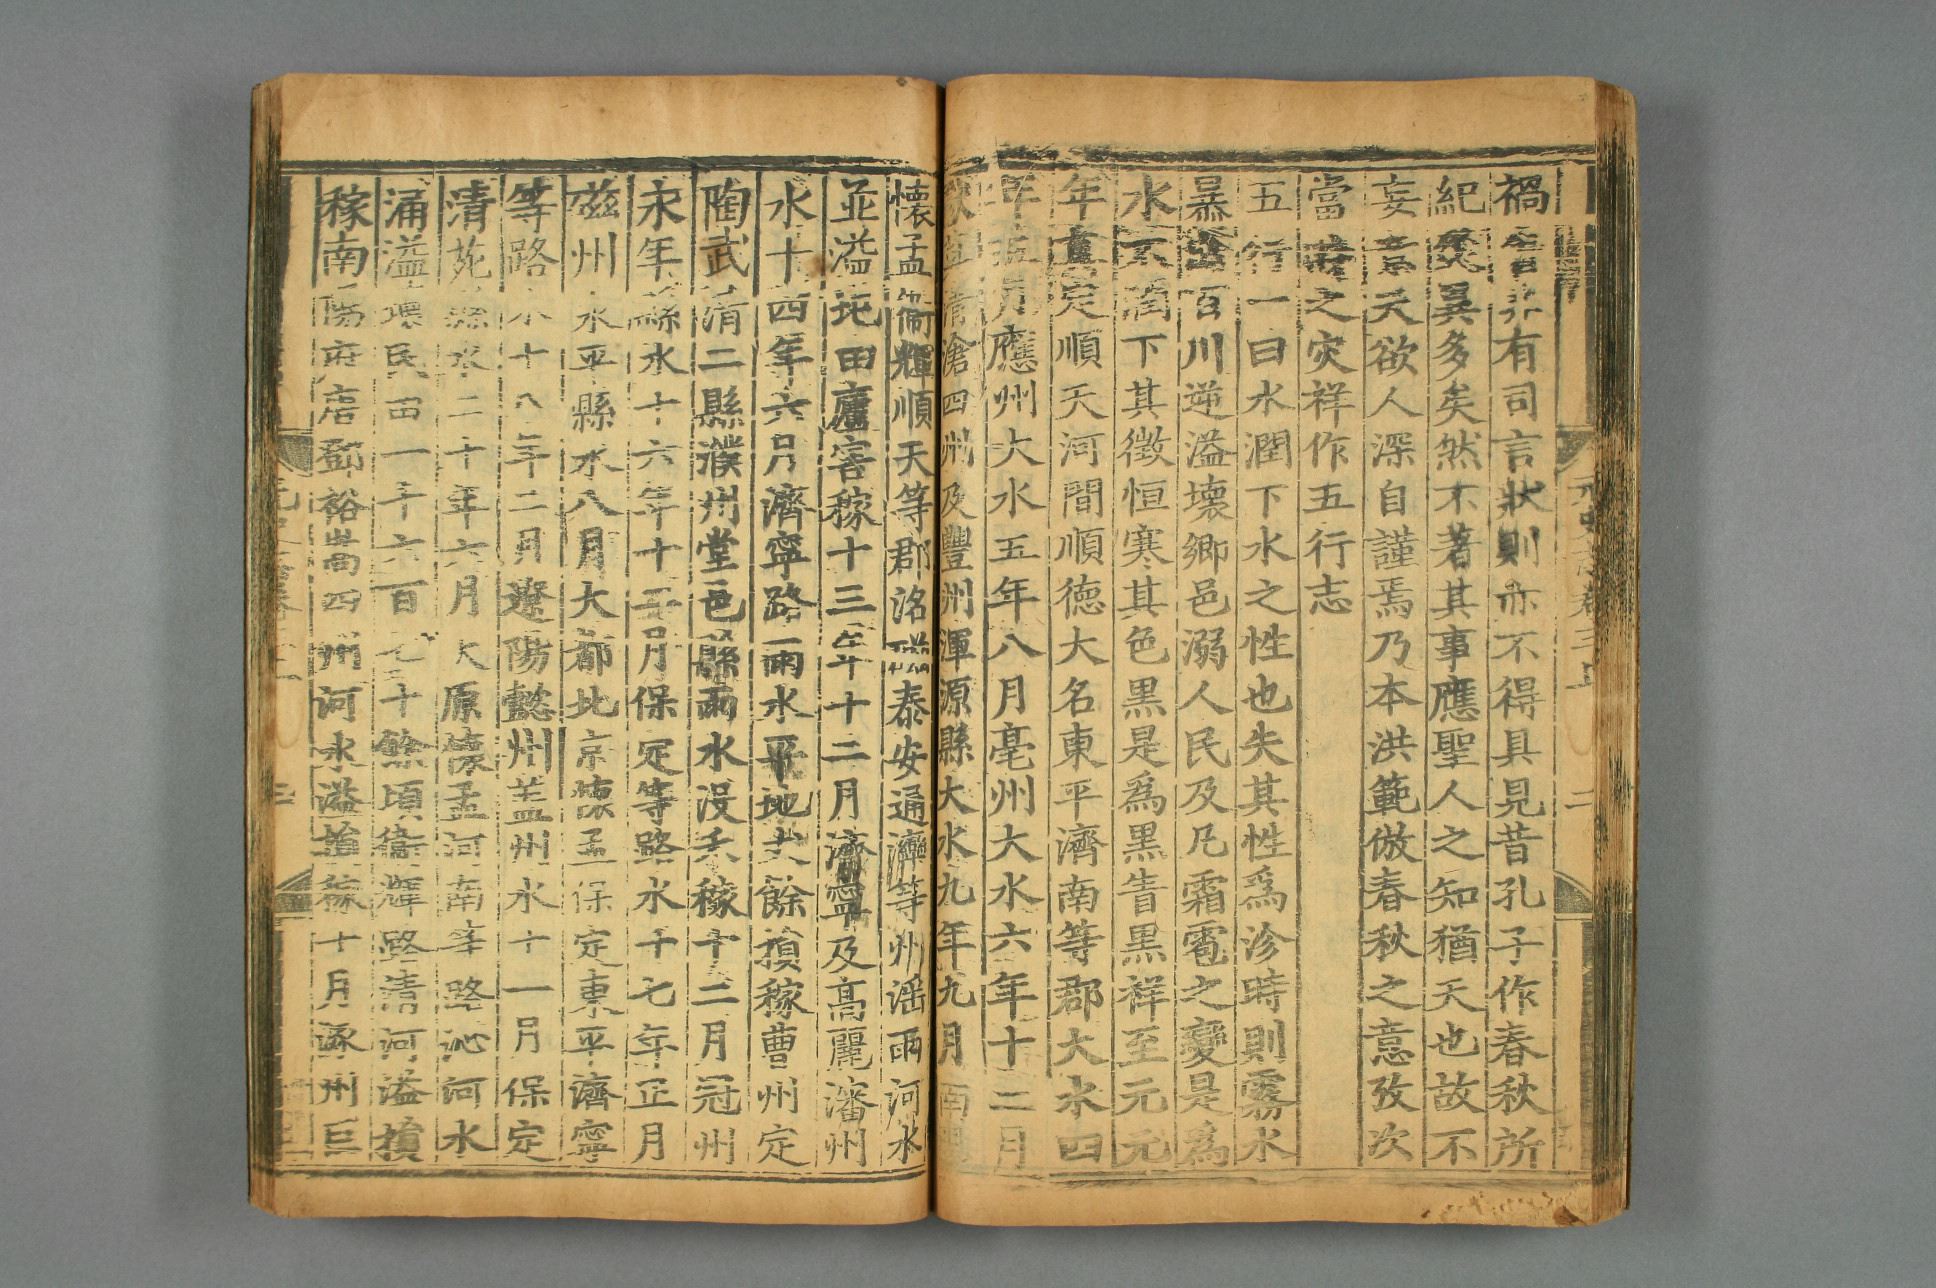 禍有司言狀則亦不得具見昔孔子作春秋所
紀災異多矣然不著其事應聖人之知猶天也故不
妄言天欲人深自謹焉乃本洪範倣春秋之意攷次
當時之灾祥作五行志
五行一曰水潤下水之性也失其性爲沴時則霧水
暴出百川逆溢壞鄉邑溺人民及凡霜雹之變是爲
水不潤下其徵恒寒其色黒是爲黒眚黒祥至元元
年真定順天河間順德大名東平濟南等郡大水四
年五月應州大水五年八月亳州大水六年十二月
獻孟清滄四州及豐州渾源縣大水九年九月南陽
懷孟衛輝順天等郡洺磁泰安通灤等州滛雨河水
並溢圯田廬害稼十三年十二月濟寧及高麗瀋州
水十四年六月濟寧路雨水平地丈餘損稼曹州定
陶武清二縣濮州堂邑縣雨水没禾稼十二月冠州
永年縣水十六年十二月保定等路水十七年正月
磁州永平縣水八月大都北京懷孟保定東平濟寧
等路水十八年二月遼陽懿州盖州水十一月保定
清苑縣水二十年六月太原懷孟河南等路沁河水
涌溢壞民田一千六百七十餘頃衛輝路清河溢損
稼南陽府唐鄧裕嵩四州河水溢損稼十月涿州巨